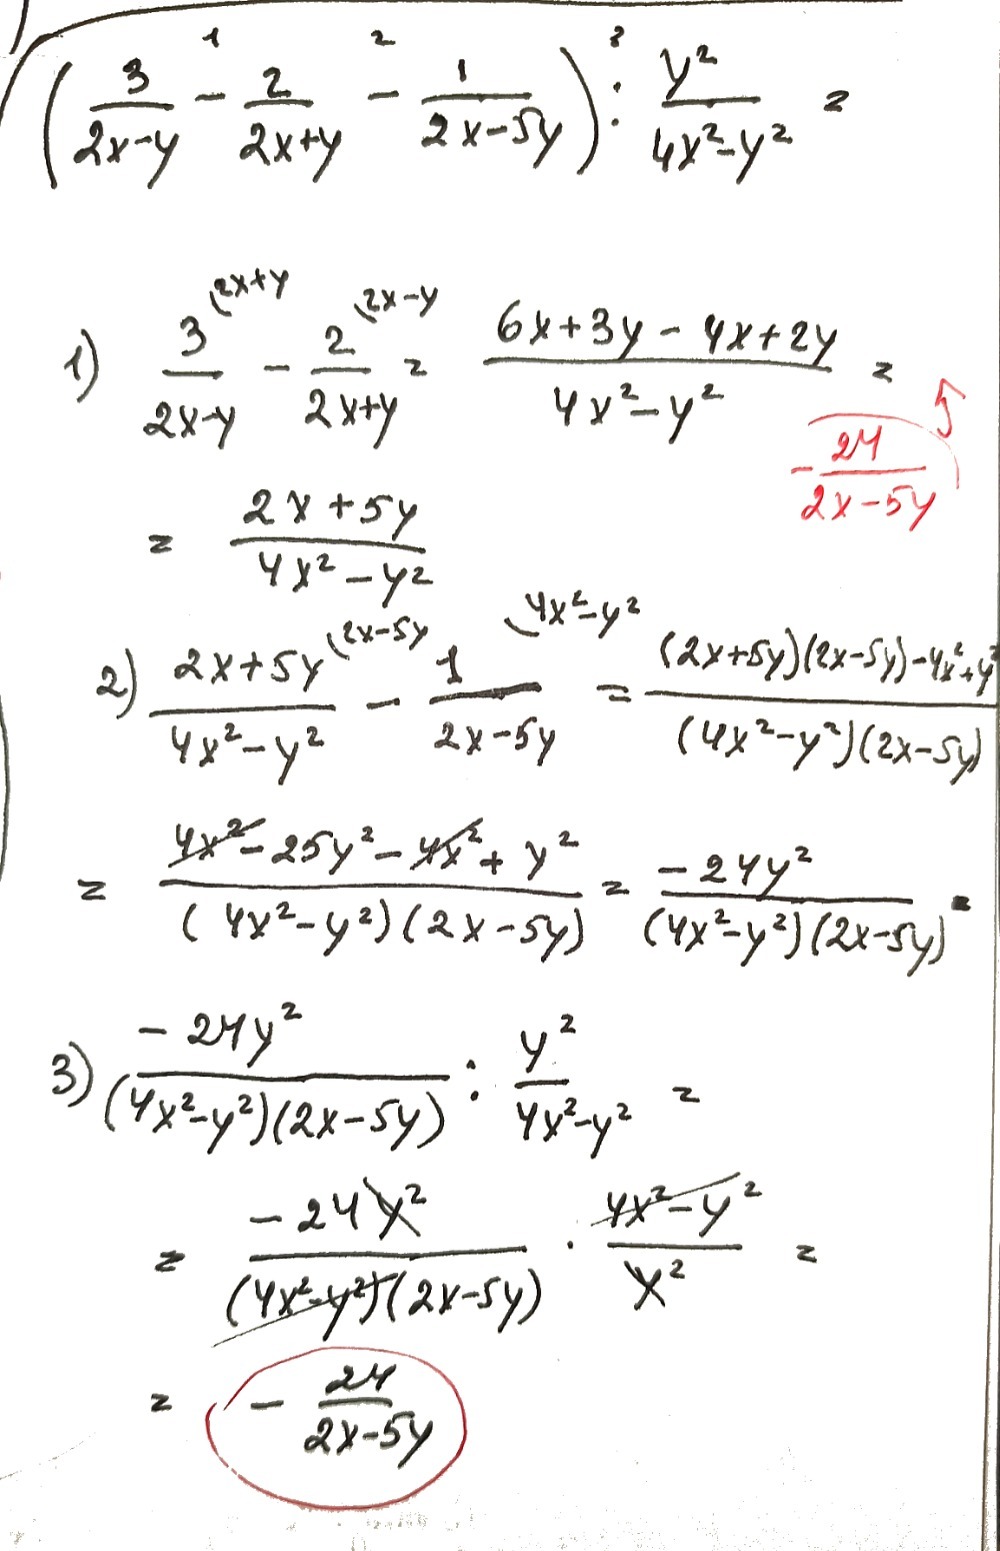 (3/(2x-y) - 2/(2x+y) - 1/(2x-5y)) : y²/(4x²-y²) =
1 2 3
1) 3/(2x-y) (2x+y - 2/(2x+y) (2x-y = (6x+3y-4x+2y)/(4x²-y²) =
= (2x+5y)/(4x²-y²)
-24/(2x-5y)
2) (2x+5y)/(4x²-y²) (2x-5y - 1/(2x-5y) (4x²-y² = ((2x+5y)(2x-5y)-4x²+y²)/((4x²-y²)(2x-5y))
= (4x²-25y²-4x²+y²)/((4x²-y²)(2x-5y)) = -24y²/((4x²-y²)(2x-5y))
3) -24y²/((4x²-y²)(2x-5y)) : y²/(4x²-y²) =
= -24y²/((4x²-y²)(2x-5y)) · (4x²-y²)/y² =
= -24/(2x-5y)